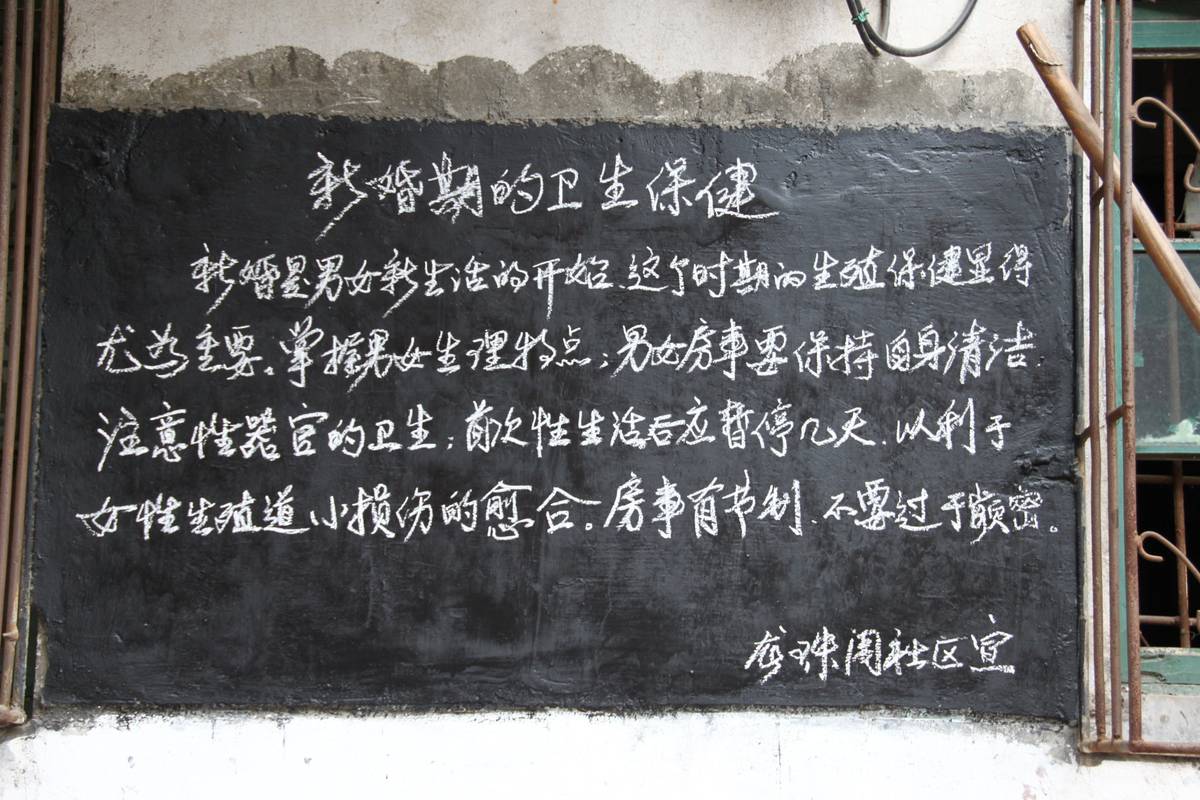 新婚期的卫生保健
新婚是男女新生活的开始.这个时期的生殖保健显得
尤为重要。掌握男女生理特点;男女房事要保持自身清洁.
注意性器官的卫生;首次性生活后应暂停几天.以利于
女性生殖道小损伤的愈合。房事有节制.不要过于频密。
龙珠阁社区宣